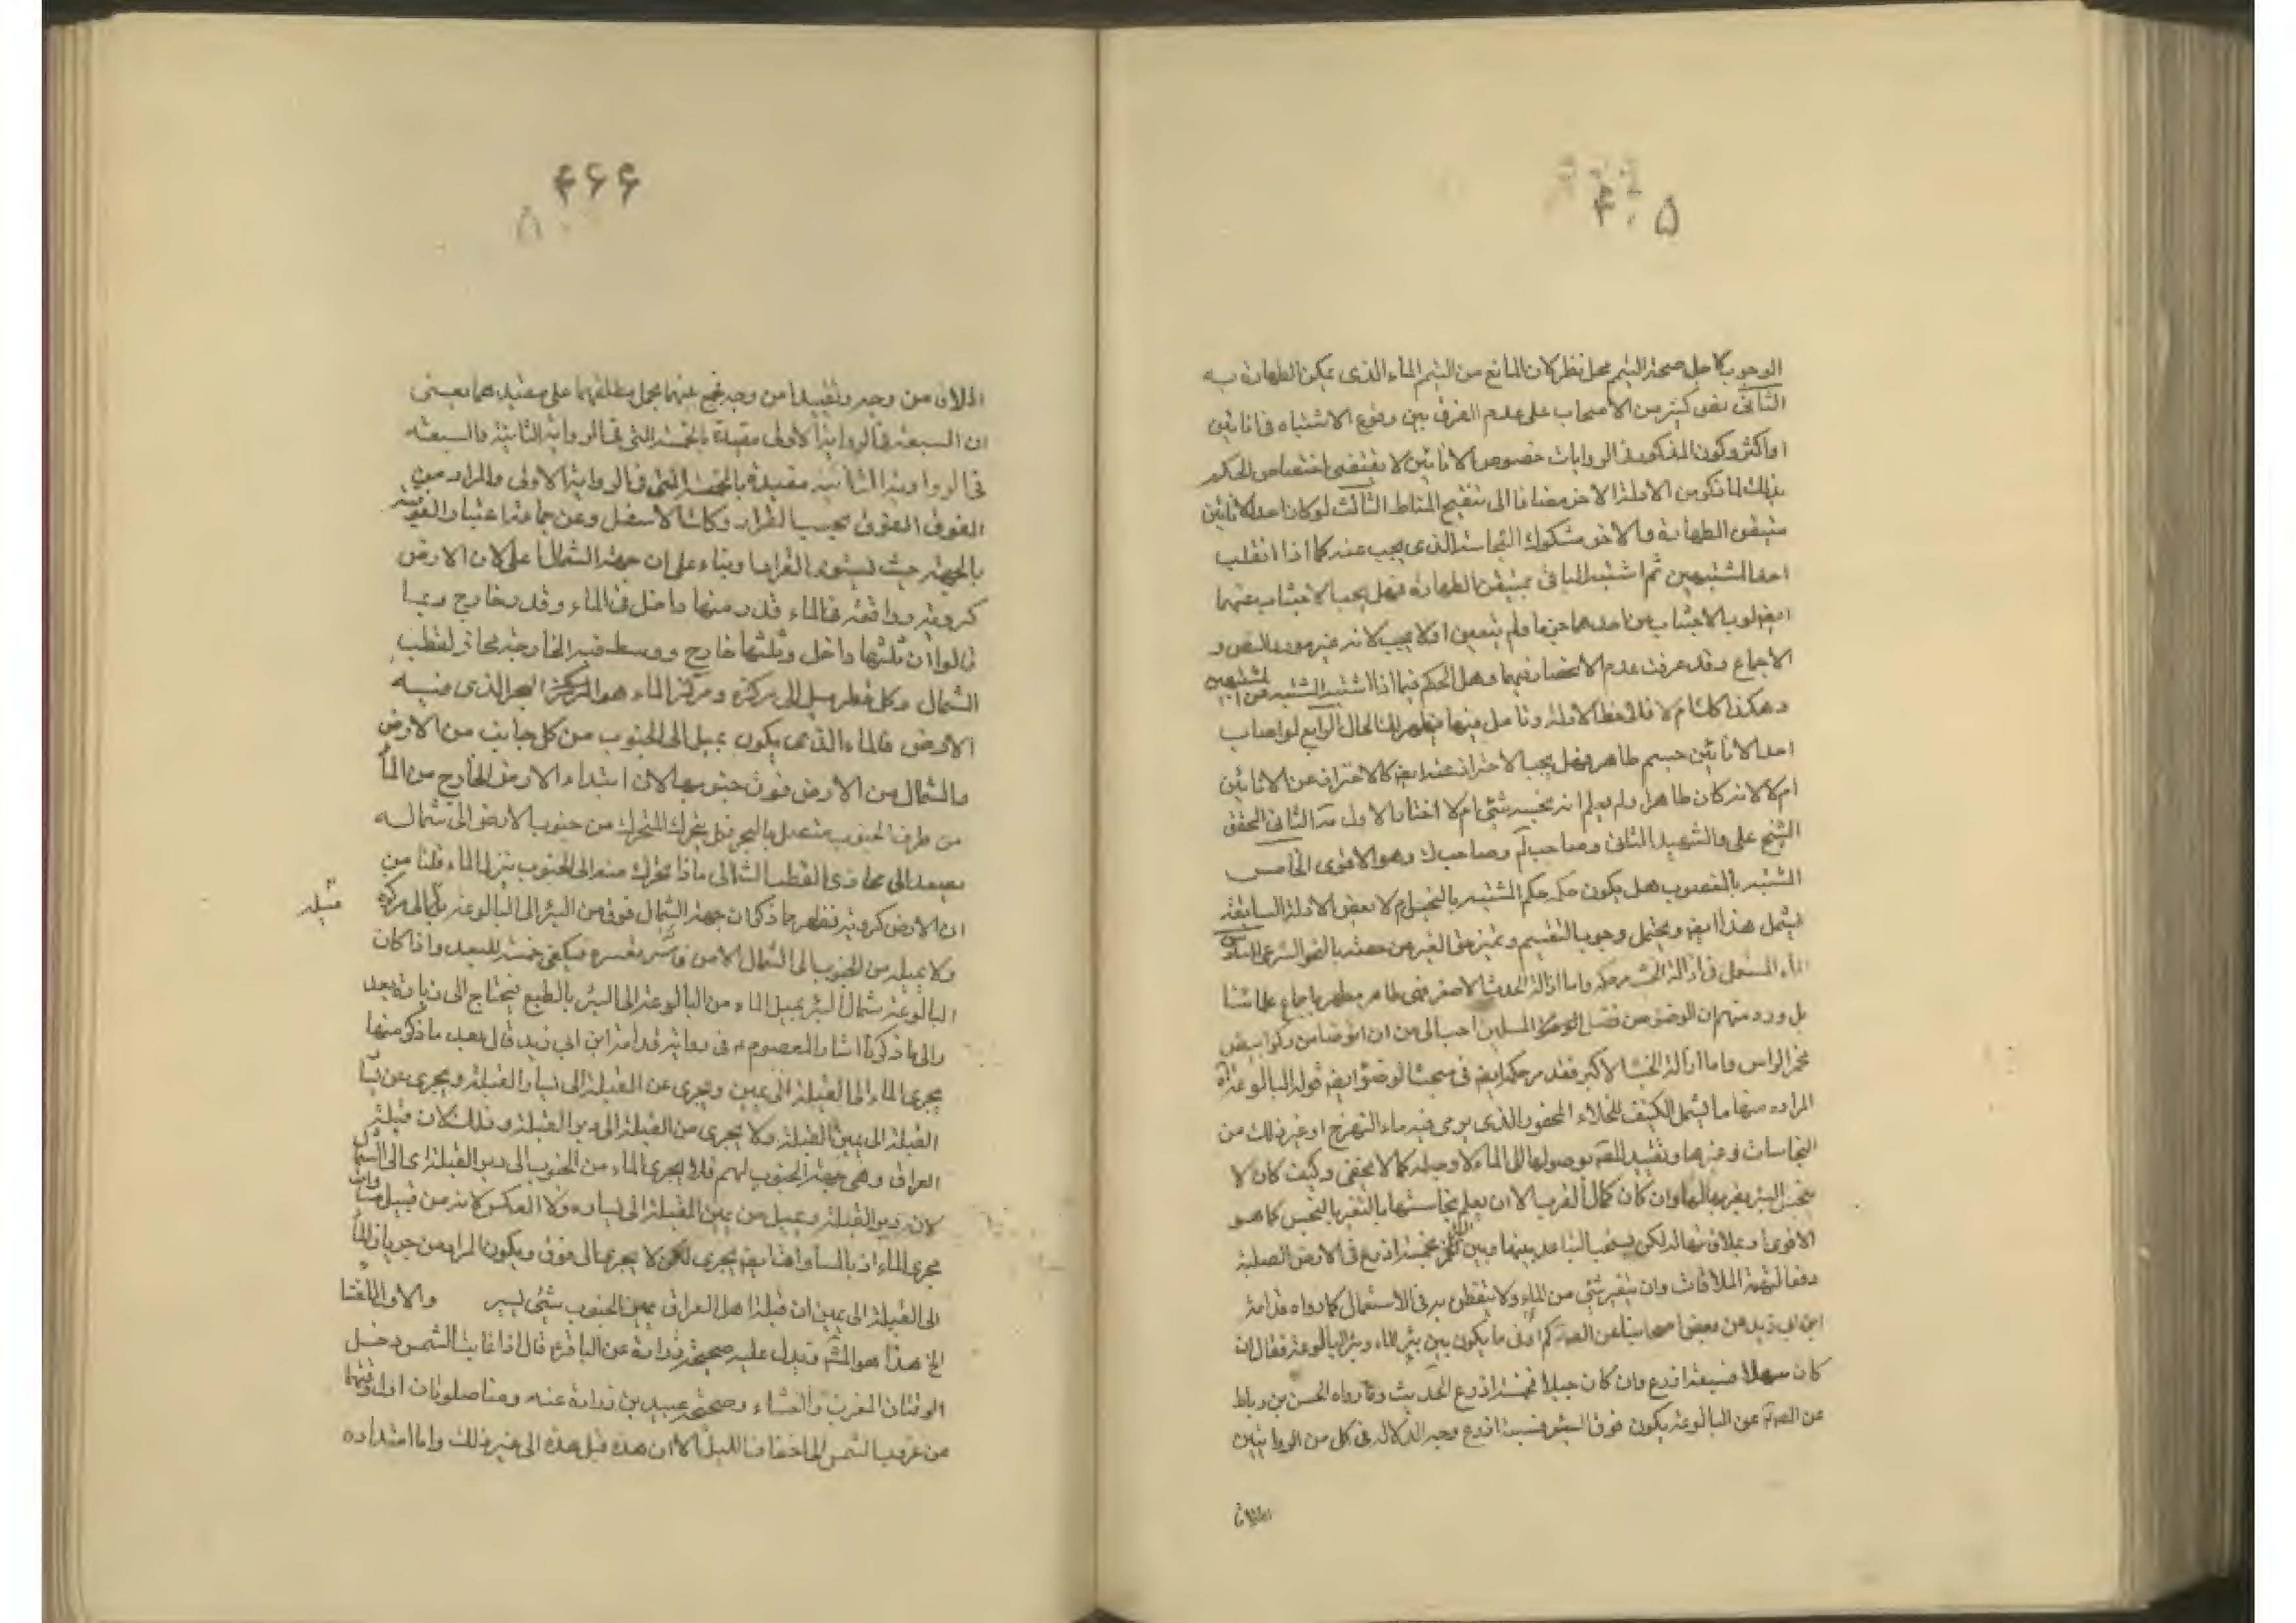 ۴۰۵
الوجوب لاجل صحة التيمم محل نظر لان المانع من التيمم الماء الذى يمكن الطهارة به
الثانى نص كثير من الاصحاب على عدم الفرق بين وقوع الاشتباه فى اناءين
او اكثر وكون المذكور فى الروايات خصوص الاناءين لا يقتضى اختصاص الحكم
بذلك لما ذكر من الادلة الاخر مضافا الى تنقيح المناط الثالث لو كان احد الاناءين
متيقن الطهارة والاخر مشكوك النجاسة الذى يجب عنه كما اذا انقلب
احد المشتبهين ثم اشتبه الباقى بمتيقن الطهارة فهل يجب الاجتناب عنهما
ايضا لوجوب الاجتناب عن احدهما جزما ولم يتعين او لا يجب لانه غير مورد النص و
الاجماع وقد عرفت عدم الانحصار فيهما وهل الحكم فيما اذا اشتبه المشتبه من المشتبهين
وهكذا كلام لاحظ الادلة وتامل فيها يظهر لك الحال الرابع لو اصاب
احد الاناءين جسم طاهر فهل يجب الاحتراز عنه ايضا كالاحتراز عن الاناءين
ام لا لانه كان طاهرا ولم يعلم انه نجسه شئ ام لا اختار الاول والثانى المحقق
الشيخ على والشهيد الثانى وصاحب لم وصاحب ك وهو الاقوى الخامس
المشتبه بالمغصوب هل يكون حكمه حكم المشتبه بالنجس ام لا بعض الادلة السابقة
يشمل هذا ايضا ويحتمل وجوب التقسيم وتميز حق الغير من حصته بالنحو الشرعى
الماء المستعمل فى ازالة الخبث مر حكمه واما ازالة الحدث الاصغر فهى طاهر مطهر باجماع علمائنا
بل ورد منهم ان الوضوء من فضل المسلمين احب الى من ان اتوضا من ركو ابيض
مخمر الراس واما ازالة الخبث الاكبر فقد مر حكمه ايضا فى مبحث الوضوء ايضا قوله البالوعة اه
المراد منها ما يشمل الكنيف للخلاء المحفور الذى يرمى فيه ماء النزح او غير ذلك من
النجاسات وغيرها وتقييد بوصولها الى الماء لا وجه له كما لا يخفى وكيف كان لا
ينجس البئر بقربها لها وان كان كمال القرب الا ان يعلم نجاستها بالتغير بالنجس كما هو
الاقوى او بملاقاتها له لكن يستحب التباعد بينها وبين البئر بخمسة اذرع فى الارض الصلبة
دفعا لشبهة الملاقات وان يتغير شئ من الماء ولا يتفطن به فى الاستعمال كما رواه قدامة
ابن ابى زيد عن بعض اصحابنا عن الصه كم ادنى ما يكون بين بئر الماء وبئر البالوعة فقال ان
كان سهلا فسبعة اذرع وان كان جبلا فخمسة اذرع الحديث وما رواه الحسن بن رباط
عن الصه عن البالوعة يكون فوق البئر فسبعة اذرع وجه الدلالة فى كل من الروايتين
اطلاق
۴۶۶
اطلاق من وجه وتقييدا من وجه فجمع بينهما بحمل مطلقهما على مقيدهما يعنى
ان السبعة فى الرواية الاولى مقيدة بالخمسة التى فى الرواية الثانية والسبعة
فى الرواية الثانية مقيدة بالخمسة التى فى الرواية الاولى والمراد من
الفوق الفوق بحسب القرار وكانت الاسفل وعن جماعة اعتبار الفوقية
بالجهة حيث يستوى القرار بناء على ان جهة الشمال اعلى لان الارض
كروية وواقعة فى الماء قدر منها داخل فى الماء وقدر خارج وربما
قالوا ان ثلثها داخل وثلثها خارج ووسط قبة الخارجة محاذ لقطب
الشمال وكل قطر ميله الى مركزه ومركز الماء هو البحر الذى فيه
الارض فالماء الذى يكون يميل الى الجنوب من كل جانب من الارض
والشمال من الارض فوق جنوبها لان ابتداء الارض الخارج من الماء
من طرف الجنوب متصل بالبحر فكل يتحرك المتحرك من جنوب الارض الى شماله
يصعد الى محاذى القطب الشمالى فاذا تحرك منه الى الجنوب ينزل الماء قلنا من
ان الارض كروية فظهر مما ذكر ان جهة الشمال فوق من البئر الى البالوعة بل الى مركزه
ميله
ولا يميله من الجنوب الى الشمال الا من قاسر يقسره فيكفى خمسة للبعد واذا كان
البالوعة شمال البئر يميل الماء من البالوعة الى البئر بالطبع فيحتاج الى زيادة بعد
والى ما ذكرنا اشار المعصوم ع فى رواية قدامة ابن ابى زيد قال بعد ما ذكر منها
يجرى الماء الى القبلة الى يمين ويجرى عن القبلة الى يسار القبلة ويجرى عن يسار
القبلة الى يمين القبلة ولا يجرى من القبلة الى دبر القبلة وذلك لان قبلة
العراق وهى جهة الجنوب لهم فلا يجرى الماء من الجنوب الى دبر القبلة اى الى الشمال
لان دبر القبلة ويميل من يمين القبلة الى يساره ولا العكس لانه من قبيل
مجرى الماء اذ بالمساواة ايضا يجرى لكن لا يجرى الى فوق ويكون المراد من جريان الماء
الى القبلة الى يمين ان قبلة اهل العراق يمين الجنوب بشئ يسير
الخ هذا هو المشهور ويدل عليه صحيحة زرارة عن الباقر ع قال اذا غابت الشمس دخل
الوقتان المغرب والعشاء وصحيحة عبيد بن زرارة عنه ومنها صلوتان اول وقتهما
من غروب الشمس الى انتصاف الليل الا ان هذه قبل هذه الى غير ذلك واما امتداده